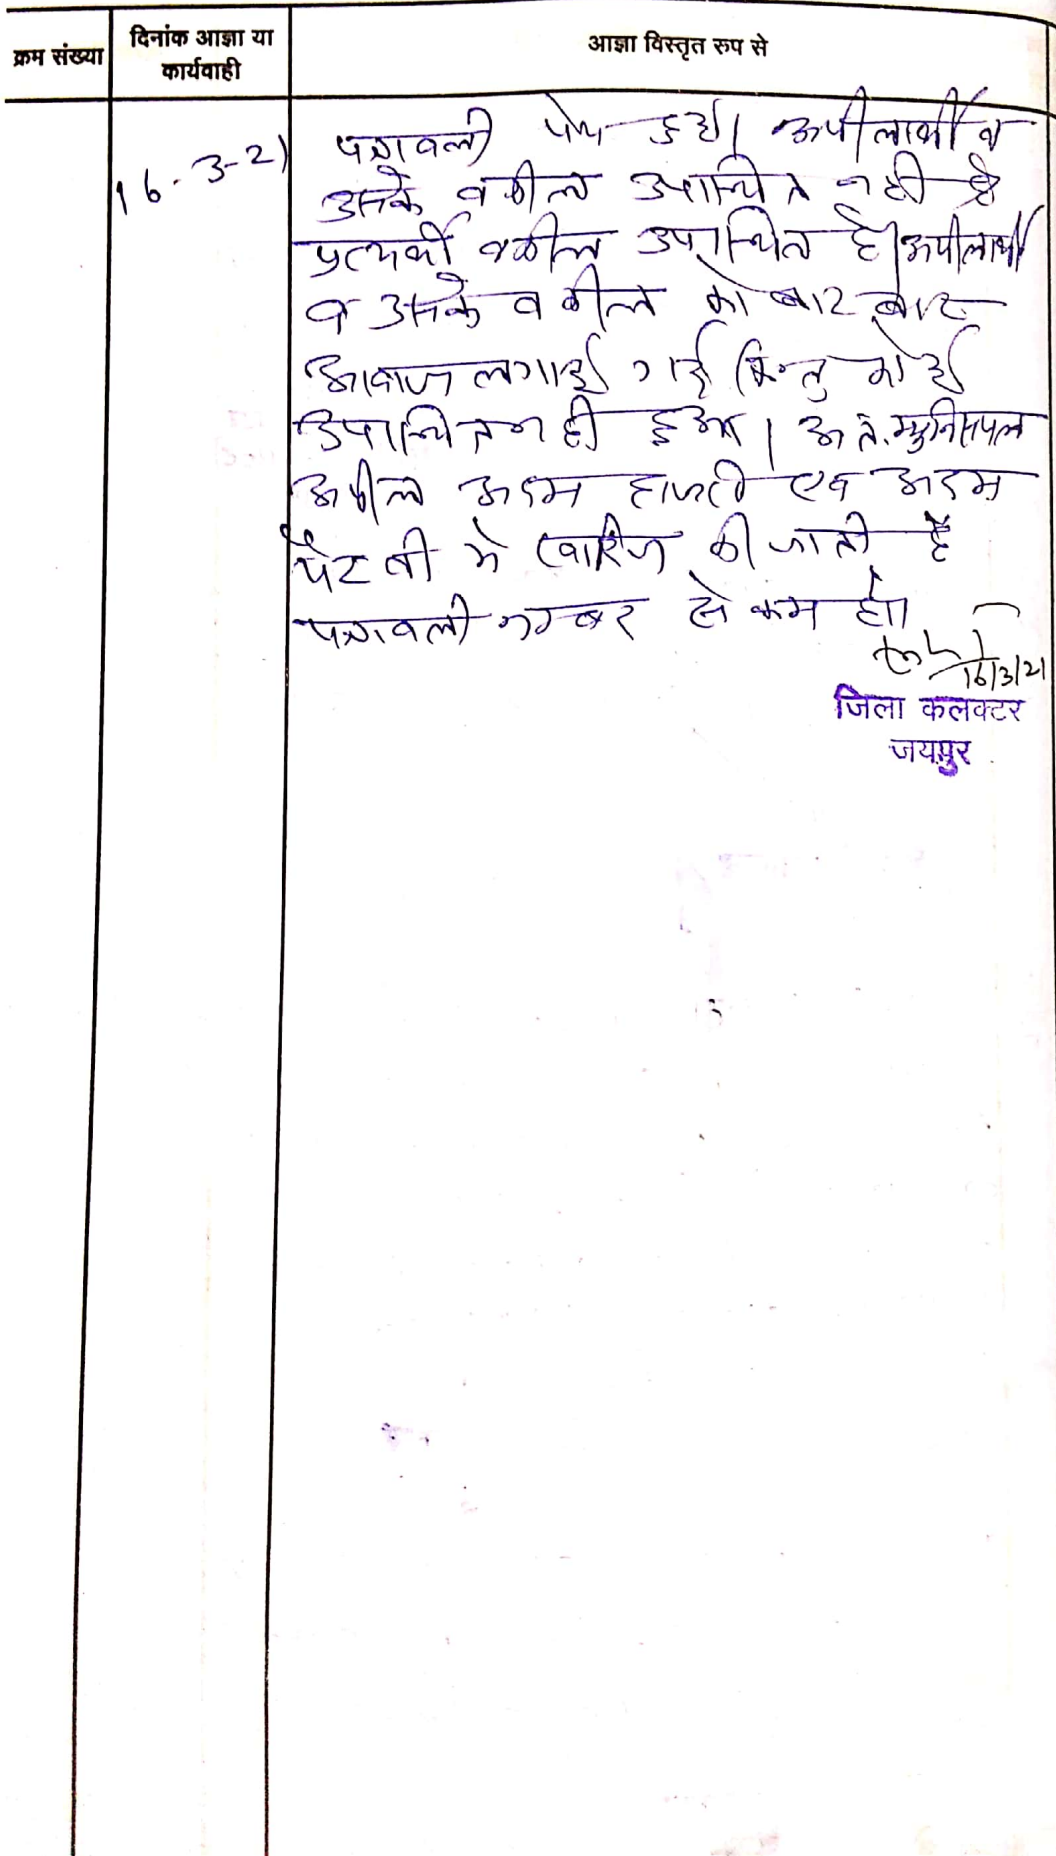 क्रम संख्या
दिनांक आज्ञा या
कार्यवाही
आज्ञा विस्तृत रूप से
16-3-21
पत्रावली पेश हुई। अपीलार्थी व
उसके वकील उपस्थित नही है
प्रत्यर्थी वकील उपस्थित है। अपीलार्थी
व उसके वकील को बार बार
आवाज लगाई गई किन्तु कोई
उपस्थित नही हुआ। अतः म्युनिसिपल
अपील अदम हाजरी एवं अदम
पैरवी मे खारिज की जाती है
पत्रावली नम्बर से कम हो।
16/3/21
जिला कलक्टर
जयपुर